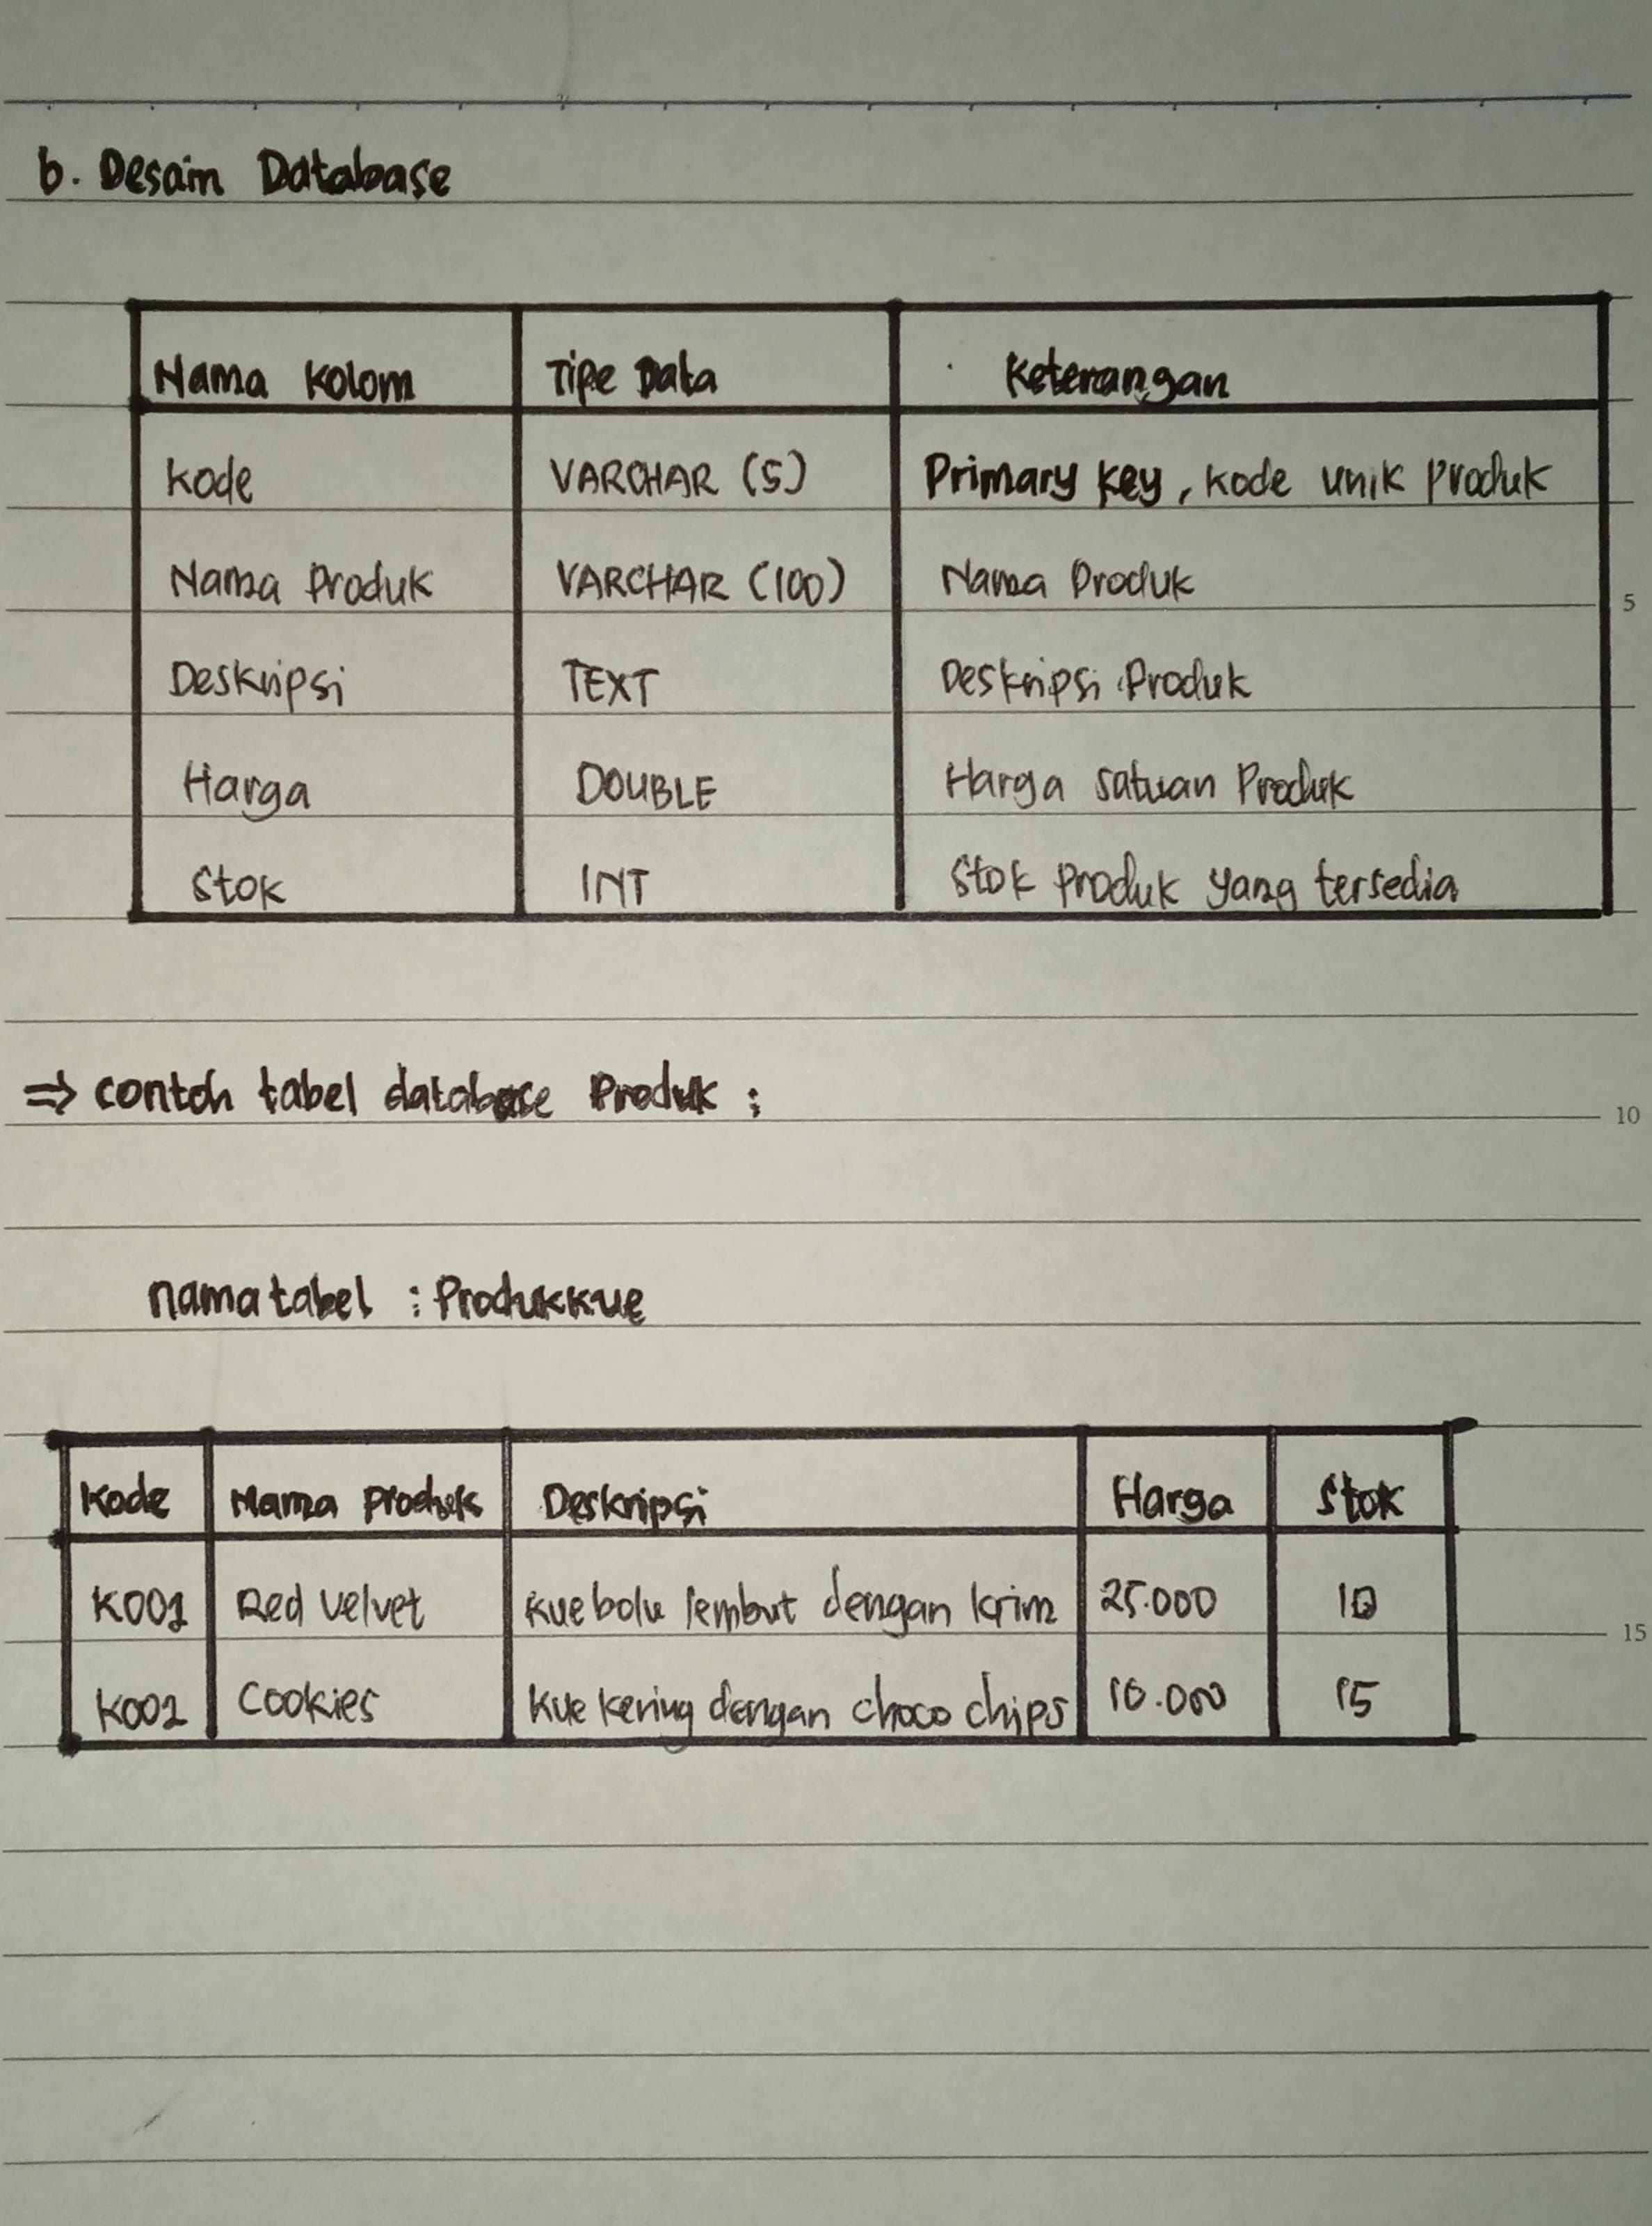 b. Desain Database
Nama Kolom Tipe Data Keterangan
Kode VARCHAR (5) Primary Key, Kode unik Produk
Nama Produk VARCHAR (100) Nama Produk
Deskripsi TEXT Deskripsi Produk
5
Harga DOUBLE Harga satuan Produk
Stok INT Stok Produk yang tersedia
⇒ contoh tabel database Produk :
10
nama tabel : Produkkue
Kode Nama Produk Deskripsi Harga Stok
K001 Red Velvet Kue bolu lembut dengan krim 25.000 10
15
K002 Cookies Kue kering dengan choco chips 10.000 15